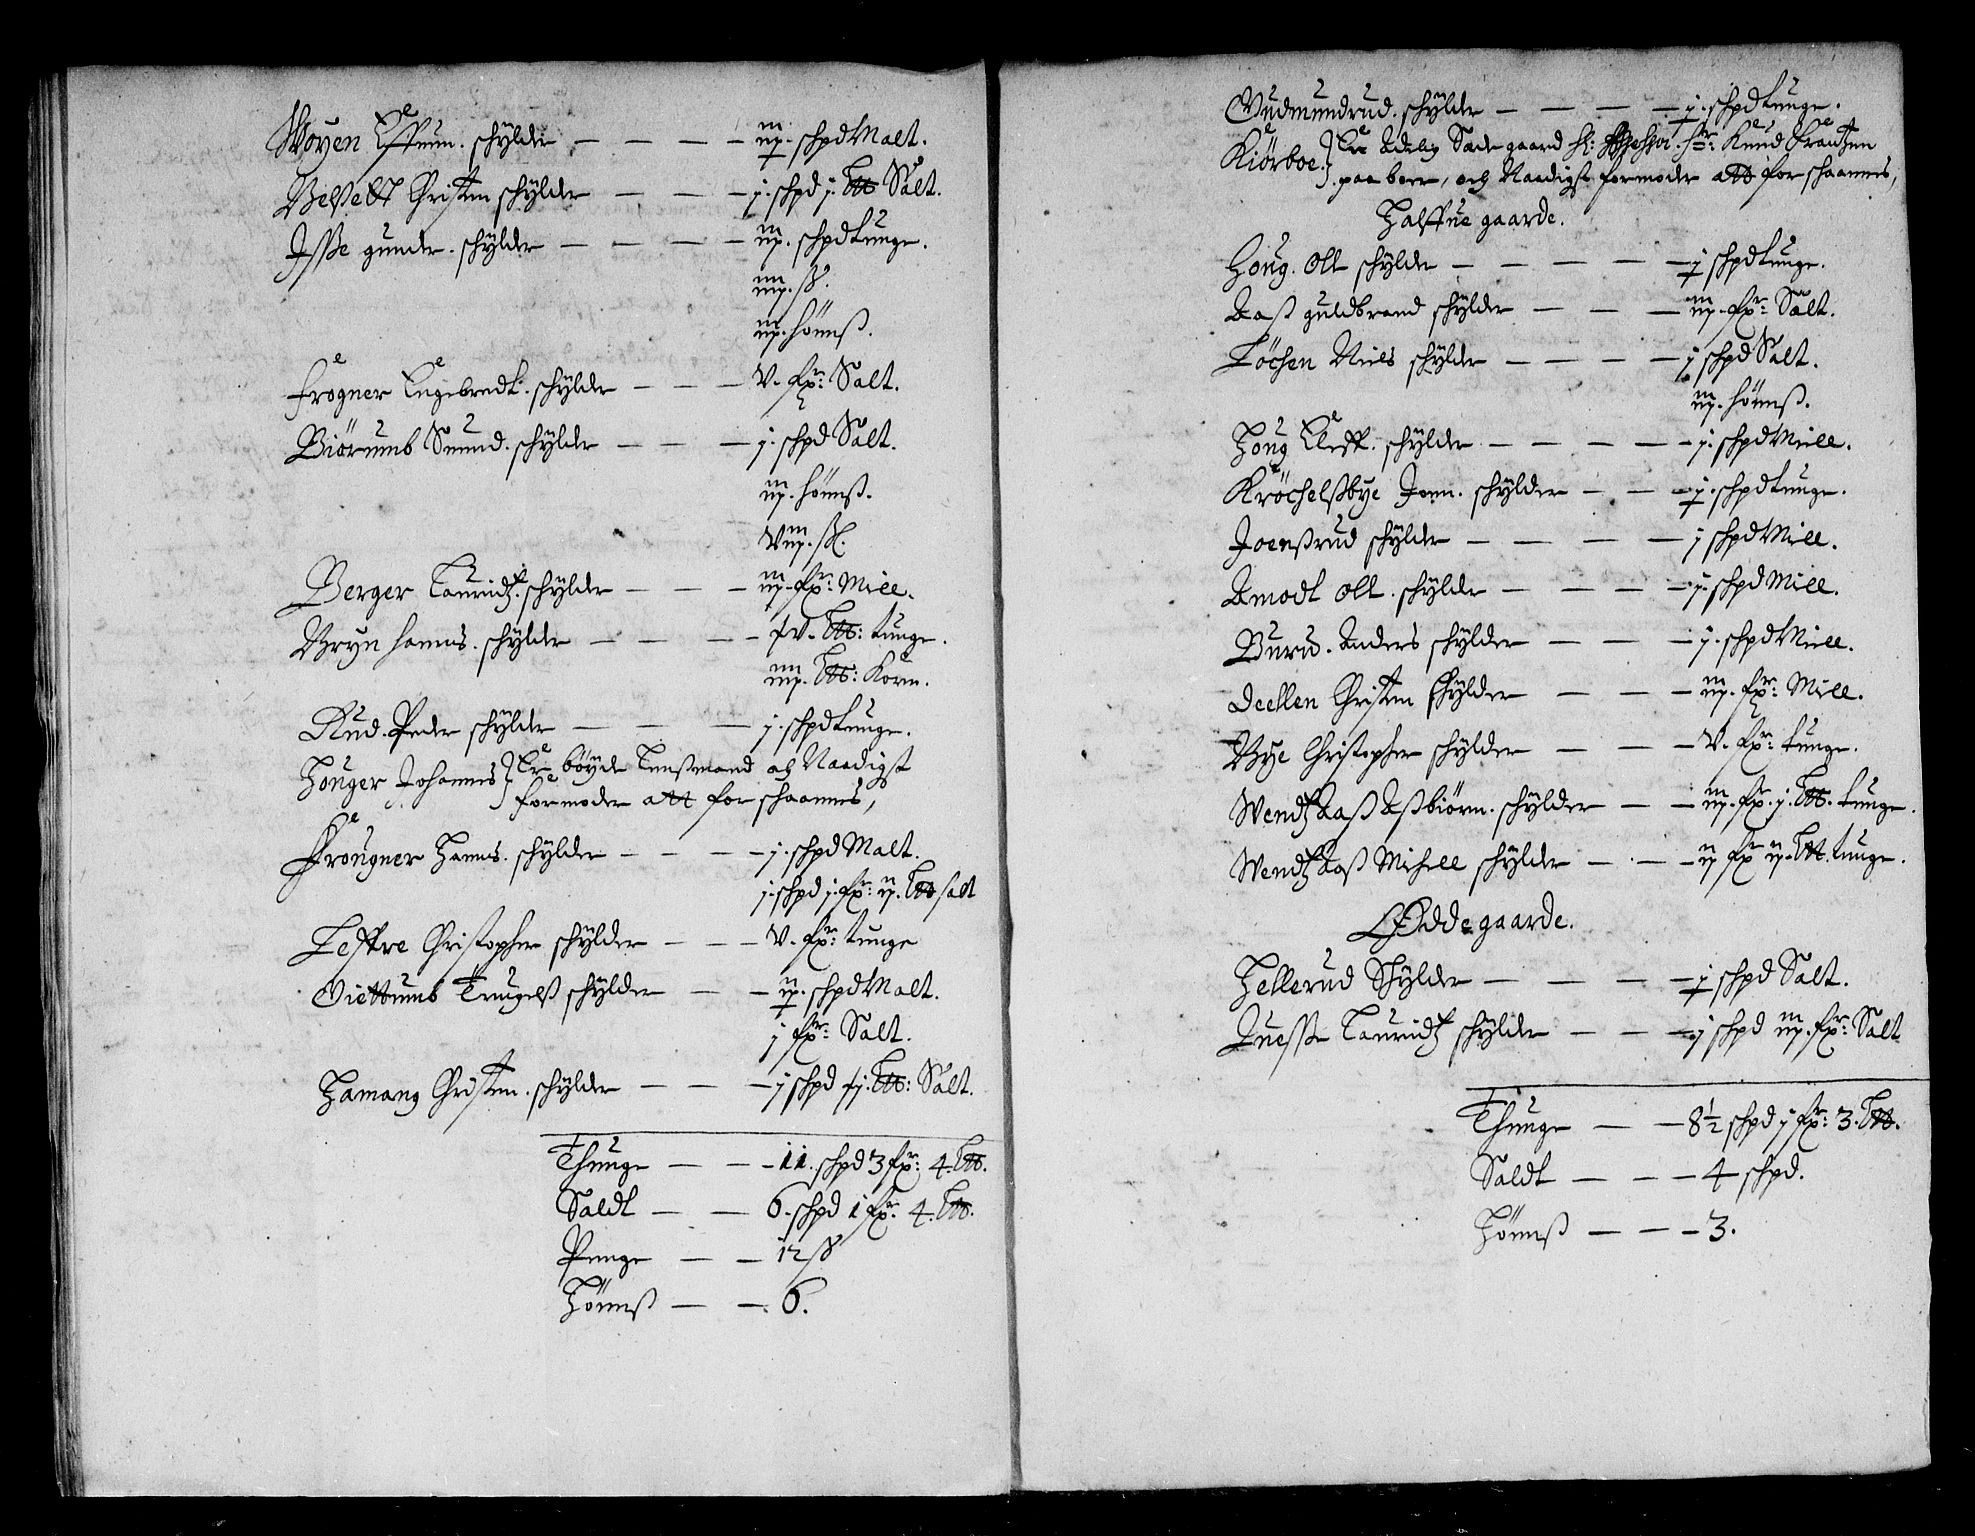 Woyen Effuen. schylder — — — iij. schpd Malt.
Beßeby Christen schylder — — — j. schpd j. Lb Salt.
Isße gunder. schylder — — — — iij. schpd tunge.
iiij. ß.
iij. hönnß.
frogner Engebredt. schylder — — — V. fxr: Salt.
Biörumb Suend. schylder — — — j. schpd Salt.
iij. hönnß.
Viij. ßl.
Berger Lauridtz. schylder — — — iij. fxr: Miell.
Bryn hanns. schylder — — — — Lb: tunge.
iiij. Lb: Korn.
Rud. Peder schylder — — — — j. schpd tunge.
Houger Johannes } Er böyde Lenßmand och Naadigst
formoder att forschaannes,
Frougner Hanns. schylder — — — — j. schpd Malt.
j. schpd j. fxr: ij. Lb salt
Leffre Christopher schylder — — — V. fxr: tunge
Giettumb Truugelß schylder — — ij. schpd Malt.
j fxr: Salt.
Hamang Christen. schylder — — — j schpd Lb: Salt.
Thunge — — — 11. schpd 3 fxr: 4. Lb.
Saldt — — 6. schpd 1 fxr. 4. Lb.
Penge — — 12 ß
Hönnß — — 6.
Gudmundrud. schylder — — — — j. schpd tunge.
Kiörboe. } Er Adelig Sædegaard Hr: Knud Frantzen
paa boer, och Naadigst formoder att forschaannes,
Halffue gaarde.
Houg. Oll schylder — — — — — j schpd tunge.
Aaß guldbrand schylder — — — iij. fxr: Salt.
Löchen Niels schylder — — — — j schpd Salt.
iij. hönnß.
Houg Elleff. schylder — — — — j. schpd Miell.
Kröchelßbye Joen. schylder — — — j. schpd tunge.
Joenßrud schylder — — — — j schpd Miell.
Amodt Oll. schylder — — — — j. schpd Miell.
Burud. Anders schylder — — — j. schpd Miell.
Deellen Christen schylder — — — iij. fxr: Miell.
Bye Christopher schylder — — — V. fxr: tunge.
Wendtz Aaß Aßbiörn. schylder — — iij. fxr. j. Lb. tunge.
Wendtz Aaß Michell schylder — — ij fxr ij. Lb. tunge.
Ødde gaarde.
Hellerud Skylder — — — — j schpd Salt.
Juesße Lauridtz schylder — — — j schpd iij. fxr: Salt
Thunge — — 8½ schpd j fxr: 3. Lb.
Saldt — — — 4 schpd.
Hönnß — — — 3.